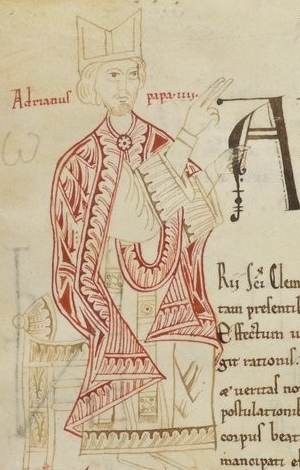 Adrianus papa·iiii·
A
Rij Sc̄i Clem
tam presentib
Effectum u
git rationis.
æ ueritas no
postulationib
corpus beat
mancipati et